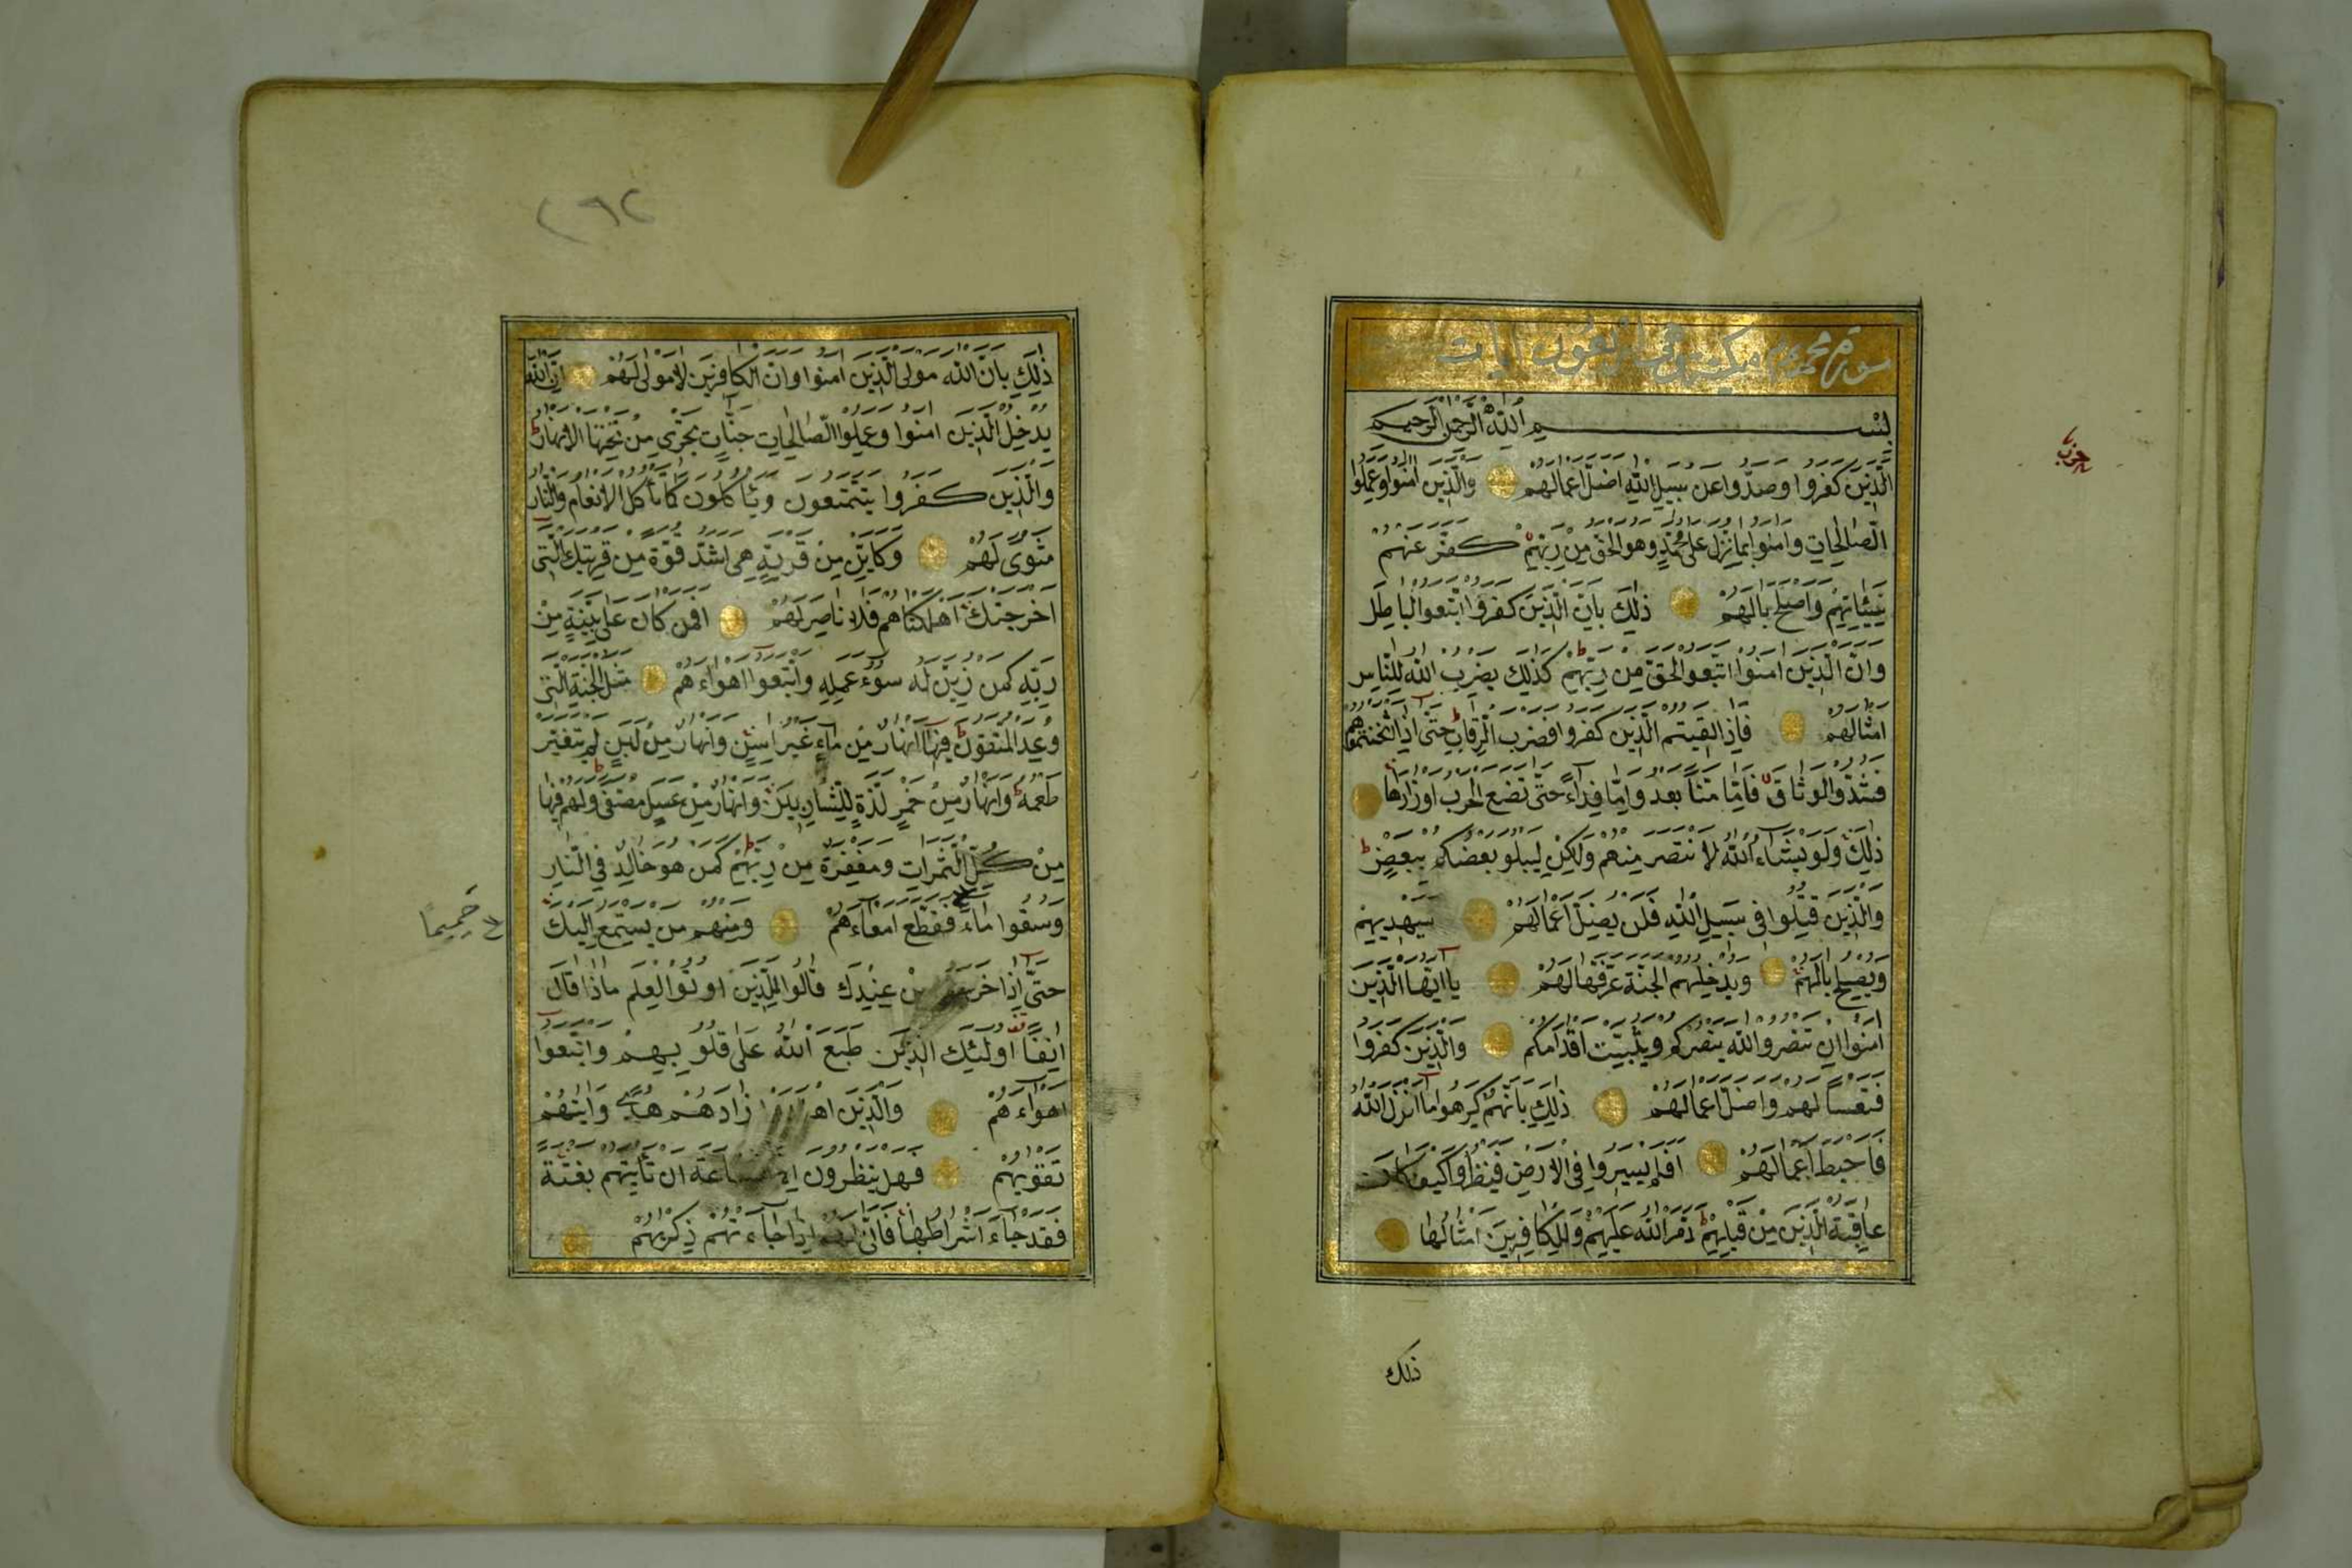 سورة محمد مكية وهي اربعون ايات
بِسْمِ اللّٰهِ الرَّحْمٰنِ الرَّحِيمِ
الَّذِينَ كَفَرُوا وَصَدُّوا عَنْ سَبِيلِ اللّٰهِ اَضَلَّ اَعْمَالَهُمْ وَالَّذِينَ اٰمَنُوا وَعَمِلُوا
حزب
الصَّالِحَاتِ وَاٰمَنُوا بِمَا نُزِّلَ عَلٰى مُحَمَّدٍ وَهُوَ الْحَقُّ مِنْ رَبِّهِمْ كَفَّرَ عَنْهُمْ
سَيِّئَاتِهِمْ وَاَصْلَحَ بَالَهُمْ ذٰلِكَ بِاَنَّ الَّذِينَ كَفَرُوا اتَّبَعُوا الْبَاطِلَ
وَاَنَّ الَّذِينَ اٰمَنُوا اتَّبَعُوا الْحَقَّ مِنْ رَبِّهِمْ كَذٰلِكَ يَضْرِبُ اللّٰهُ لِلنَّاسِ
اَمْثَالَهُمْ فَاِذَا لَقِيتُمُ الَّذِينَ كَفَرُوا فَضَرْبَ الرِّقَابِ حَتّٰى اِذَا اَثْخَنْتُمُوهُمْ
فَشُدُّوا الْوَثَاقَ فَاِمَّا مَنًّا بَعْدُ وَاِمَّا فِدَاءً حَتّٰى تَضَعَ الْحَرْبُ اَوْزَارَهَا
ذٰلِكَ وَلَوْ يَشَاءُ اللّٰهُ لَانْتَصَرَ مِنْهُمْ وَلٰكِنْ لِيَبْلُوَ بَعْضَكُمْ بِبَعْضٍ
وَالَّذِينَ قُتِلُوا فِي سَبِيلِ اللّٰهِ فَلَنْ يُضِلَّ اَعْمَالَهُمْ سَيَهْدِيهِمْ
وَيُصْلِحُ بَالَهُمْ وَيُدْخِلُهُمُ الْجَنَّةَ عَرَّفَهَا لَهُمْ يَا اَيُّهَا الَّذِينَ
اٰمَنُوا اِنْ تَنْصُرُوا اللّٰهَ يَنْصُرْكُمْ وَيُثَبِّتْ اَقْدَامَكُمْ وَالَّذِينَ كَفَرُوا
فَتَعْسًا لَهُمْ وَاَضَلَّ اَعْمَالَهُمْ ذٰلِكَ بِاَنَّهُمْ كَرِهُوا مَا اَنْزَلَ اللّٰهُ
فَاَحْبَطَ اَعْمَالَهُمْ اَفَلَمْ يَسِيرُوا فِي الْاَرْضِ فَيَنْظُرُوا كَيْفَ كَانَ
عَاقِبَةُ الَّذِينَ مِنْ قَبْلِهِمْ دَمَّرَ اللّٰهُ عَلَيْهِمْ وَلِلْكَافِرِينَ اَمْثَالُهَا
ذلك
٢٩٢
ذٰلِكَ بِاَنَّ اللّٰهَ مَوْلَى الَّذِينَ اٰمَنُوا وَاَنَّ الْكَافِرِينَ لَا مَوْلٰى لَهُمْ اِنَّ اللّٰهَ
يُدْخِلُ الَّذِينَ اٰمَنُوا وَعَمِلُوا الصَّالِحَاتِ جَنَّاتٍ تَجْرِي مِنْ تَحْتِهَا الْاَنْهَارُ
وَالَّذِينَ كَفَرُوا يَتَمَتَّعُونَ وَيَأْكُلُونَ كَمَا تَأْكُلُ الْاَنْعَامُ وَالنَّارُ
مَثْوًى لَهُمْ وَكَاَيِّنْ مِنْ قَرْيَةٍ هِيَ اَشَدُّ قُوَّةً مِنْ قَرْيَتِكَ الَّتِي
اَخْرَجَتْكَ اَهْلَكْنَاهُمْ فَلَا نَاصِرَ لَهُمْ اَفَمَنْ كَانَ عَلٰى بَيِّنَةٍ مِنْ
رَبِّهِ كَمَنْ زُيِّنَ لَهُ سُوءُ عَمَلِهِ وَاتَّبَعُوا اَهْوَاءَهُمْ مَثَلُ الْجَنَّةِ الَّتِي
وُعِدَ الْمُتَّقُونَ فِيهَا اَنْهَارٌ مِنْ مَاءٍ غَيْرِ اٰسِنٍ وَاَنْهَارٌ مِنْ لَبَنٍ لَمْ يَتَغَيَّرْ
طَعْمُهُ وَاَنْهَارٌ مِنْ خَمْرٍ لَذَّةٍ لِلشَّارِبِينَ وَاَنْهَارٌ مِنْ عَسَلٍ مُصَفًّى وَلَهُمْ فِيهَا
مِنْ كُلِّ الثَّمَرَاتِ وَمَغْفِرَةٌ مِنْ رَبِّهِمْ كَمَنْ هُوَ خَالِدٌ فِي النَّارِ
وَسُقُوا مَاءً فَقَطَّعَ اَمْعَاءَهُمْ وَمِنْهُمْ مَنْ يَسْتَمِعُ اِلَيْكَ
حَمِيمًا
حَتّٰى اِذَا خَرَجُوا مِنْ عِنْدِكَ قَالُوا لِلَّذِينَ اُوتُوا الْعِلْمَ مَاذَا قَالَ
اٰنِفًا اُولٰئِكَ الَّذِينَ طَبَعَ اللّٰهُ عَلٰى قُلُوبِهِمْ وَاتَّبَعُوا
اَهْوَاءَهُمْ وَالَّذِينَ زَادَهُمْ هُدًى وَاٰتٰيهُمْ
تَقْوٰيهُمْ فَهَلْ يَنْظُرُونَ السَّاعَةَ اَنْ تَأْتِيَهُمْ بَغْتَةً
فَقَدْ جَاءَ اَشْرَاطُهَا فَاَنّٰى لَهُمْ اِذَا جَاءَتْهُمْ ذِكْرٰيهُمْ